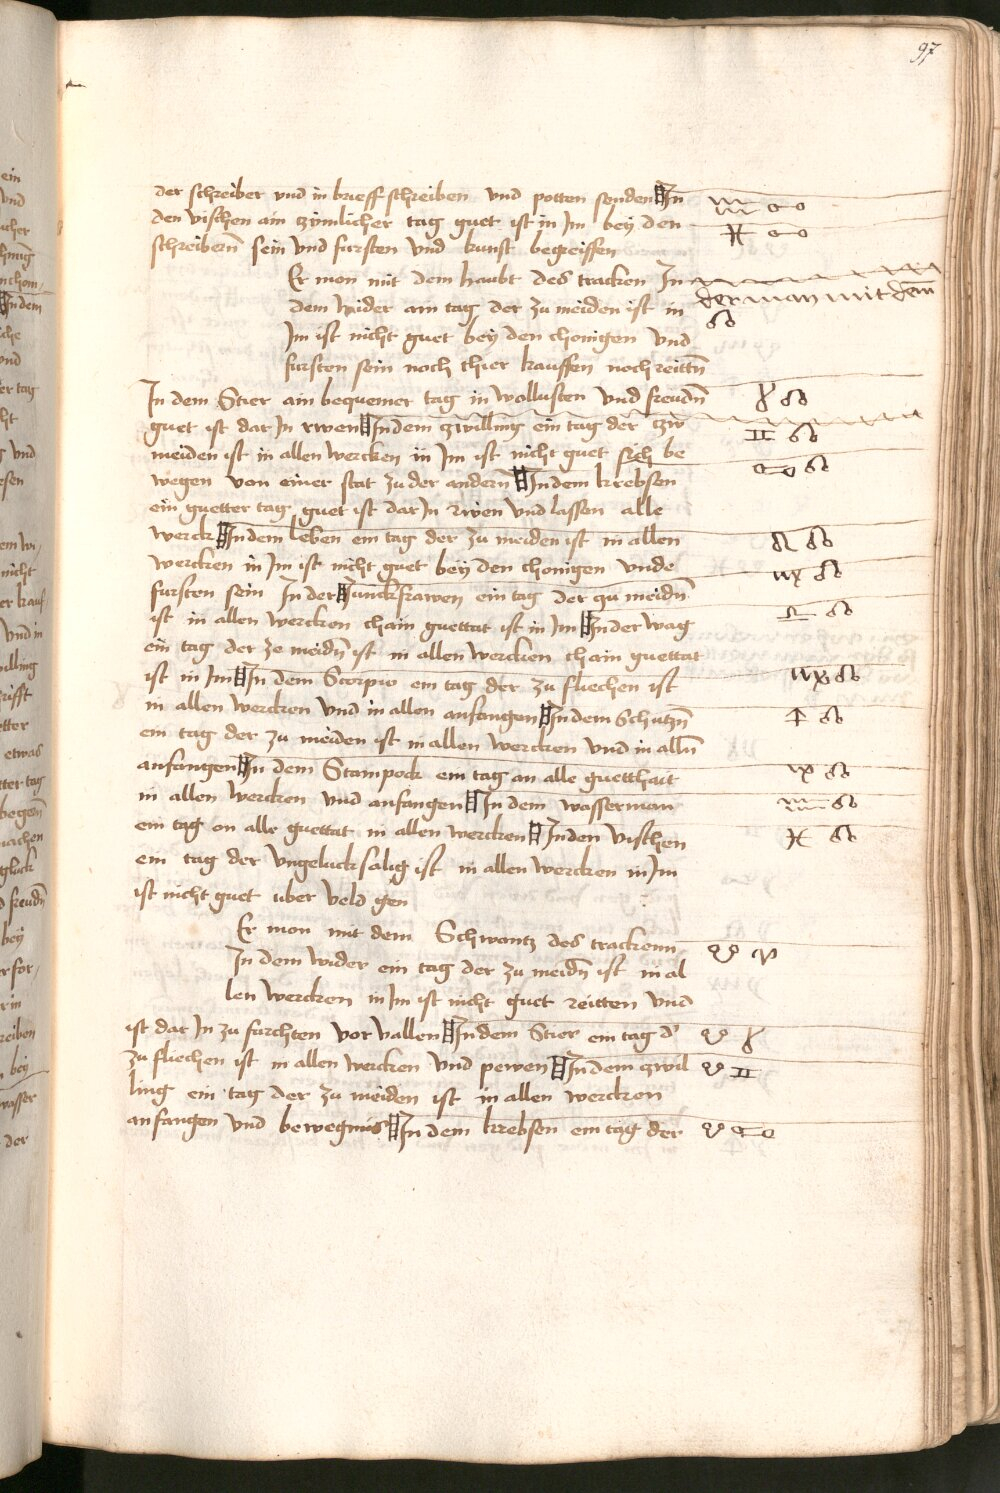 97
der schreiber vnd in brieff schreiben vnd potten senden In
den vischen ain zymlicher tag guet ist in Im bey den
schreibern sein vnd fursten vnd kunst begreiffen
Er mon mit dem haubt des tracken In
dem wider ain tag der zu meiden ist in
Im ist nicht guet bey den chonigen vnd
fursten sein noch thier kauffen noch reittn̄
der man mit dem
♈ ☊
In dem Stier ain bequemer tag in wollusten vnd freudn̄
guet ist dar In rwen In dem zwilling ein tag der zw
meiden ist in allen wercken in Im ist nicht guet sich be
wegen von einer stat zu der andern In dem krebsen
ein guetter tag guet ist dar In rwen vnd lassen alle
werck In dem leben ein tag der zu meiden ist in allen
wercken in Im ist nicht guet bey den chonigen vnde
fursten sein In der Junckfrawen ein tag der zu meidn̄
ist in allen wercken chain guettat ist in Im In der wag
ein tag der ze meidn̄ ist in allen wercken chain guettat
ist in Im In dem Scorpio ein tag der zu fliechen ist
in allen wercken vnd in allen anfangen In dem Schutzn̄
ein tag der zu meiden ist in allen wercken vnd in alln̄
anfangen In dem Stainpock ein tag an alle guetthait
in allen wercken vnd anfangen In dem wasserman
ein tag on alle guettat in allen wercken In den vischen
ein tag der vngelucksalig ist in allen wercken in Im
ist nicht guet vber veld gen
Er mon mit dem Schwantz des trackenn
In dem wider ein tag der zu meidn̄ ist in al
len wercken in Im ist nicht guet reitten vnd
ist dar In zu furchten vor vallen In dem Stier ein tag d'
zu fliechen ist in allen wercken vnd pewen In dem zwil
ling ein tag der zu meiden ist in allen wercken
anfangen vnd bewegnus In dem krebsen ein tag der